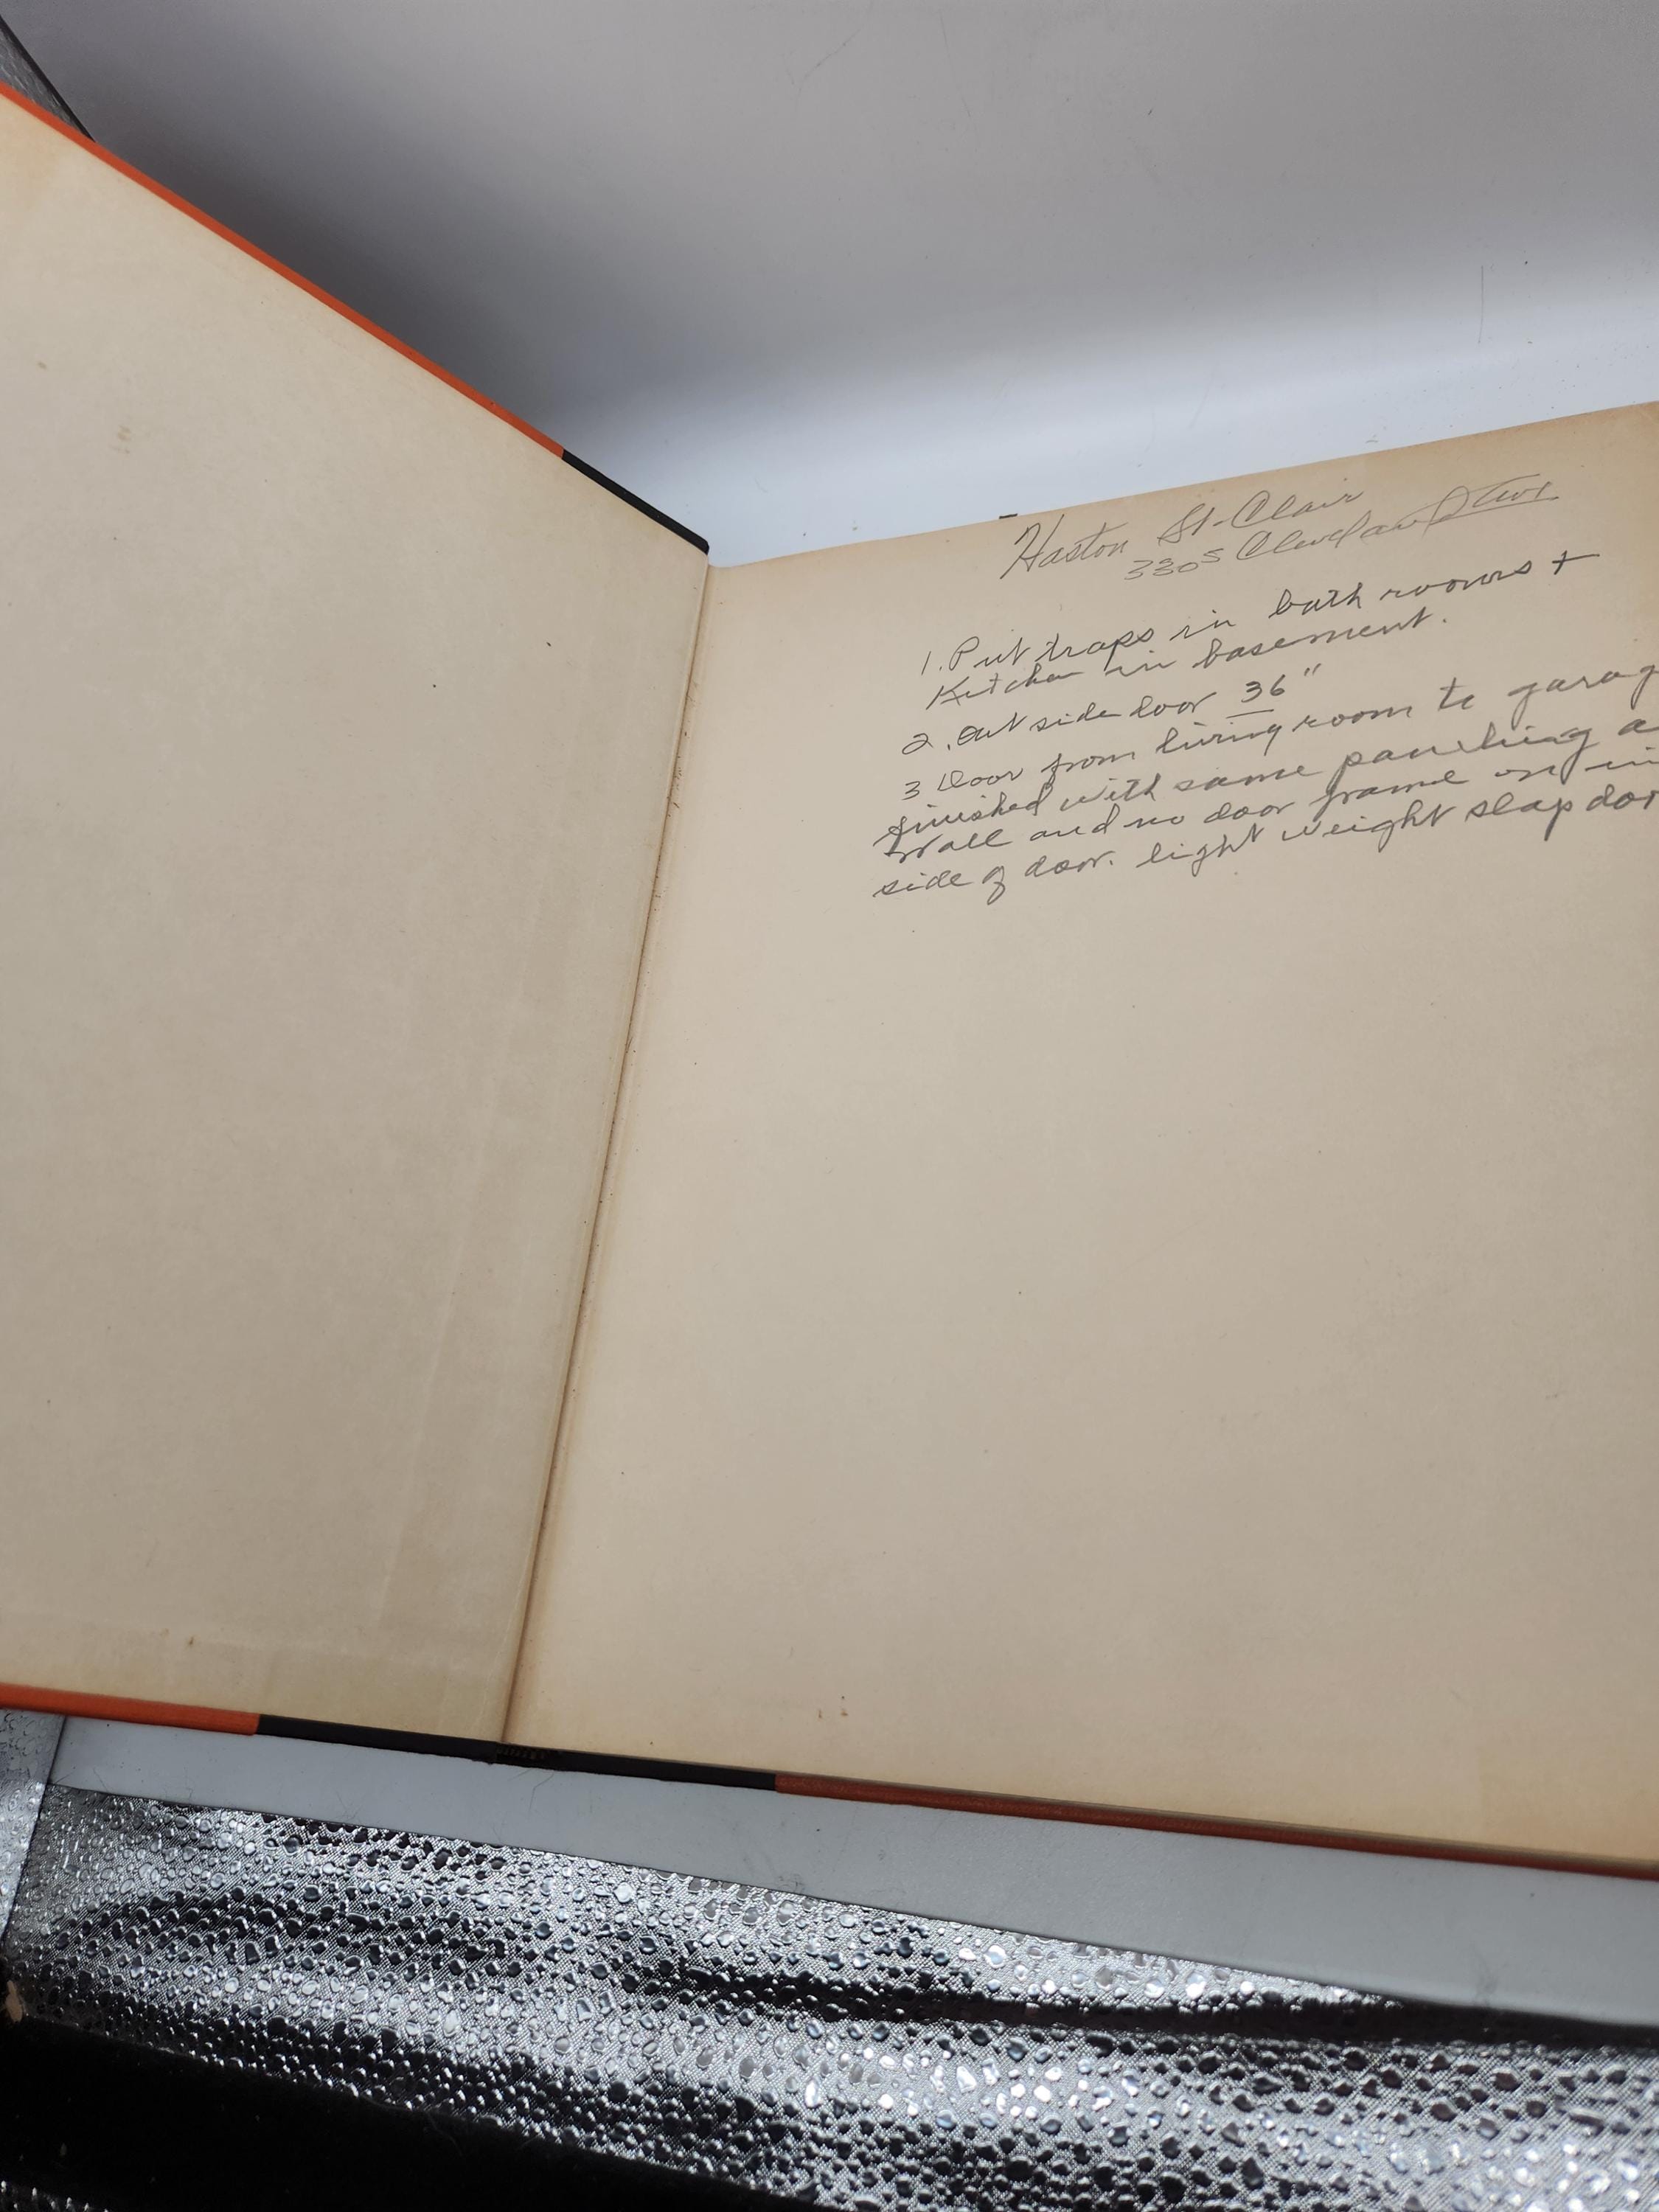 Haston St. Clair
330 S Cleveland
1. Put traps in bath rooms +
Kitchen in basement.
2. Out side door 36"
3 Door from living room to garag
finished with same panelling a
wall and no door frame on in
side of door. light weight slap door